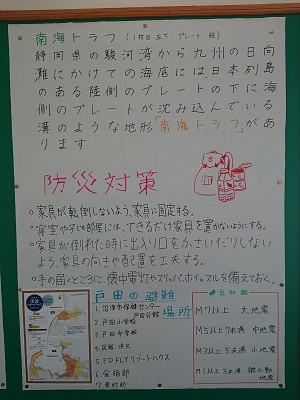 南海トラフ(1枚目 左下 プレート・絵)
静岡県の駿河湾から九州の日向
灘にかけての海底には日本列島
のある陸側のプレートの下に海
側のプレートが沈み込んでいる
溝のような地形「南海トラフ」があ
ります
防災対策
○家具が転倒しないよう、家具に固定する。
○寝室や子ども部屋には、できるだけ家具を置かないようにする。
○家具が倒れた時に出入り口をふさいだりしない
よう、家具の向きや配置を工夫する。
○手の届くところに、懐中電灯やスリッパ、ホイッスルを備えておく。
戸田の避難場所
1.沼津市保健センター
戸田分館
2.戸田小学校
3.戸田中学校
5.P.D.FLYリゾートハウス
M7以上 大地震
M5以上7未満 中地震
M3以上5未満 小地震
M1以上3未満 微小地震